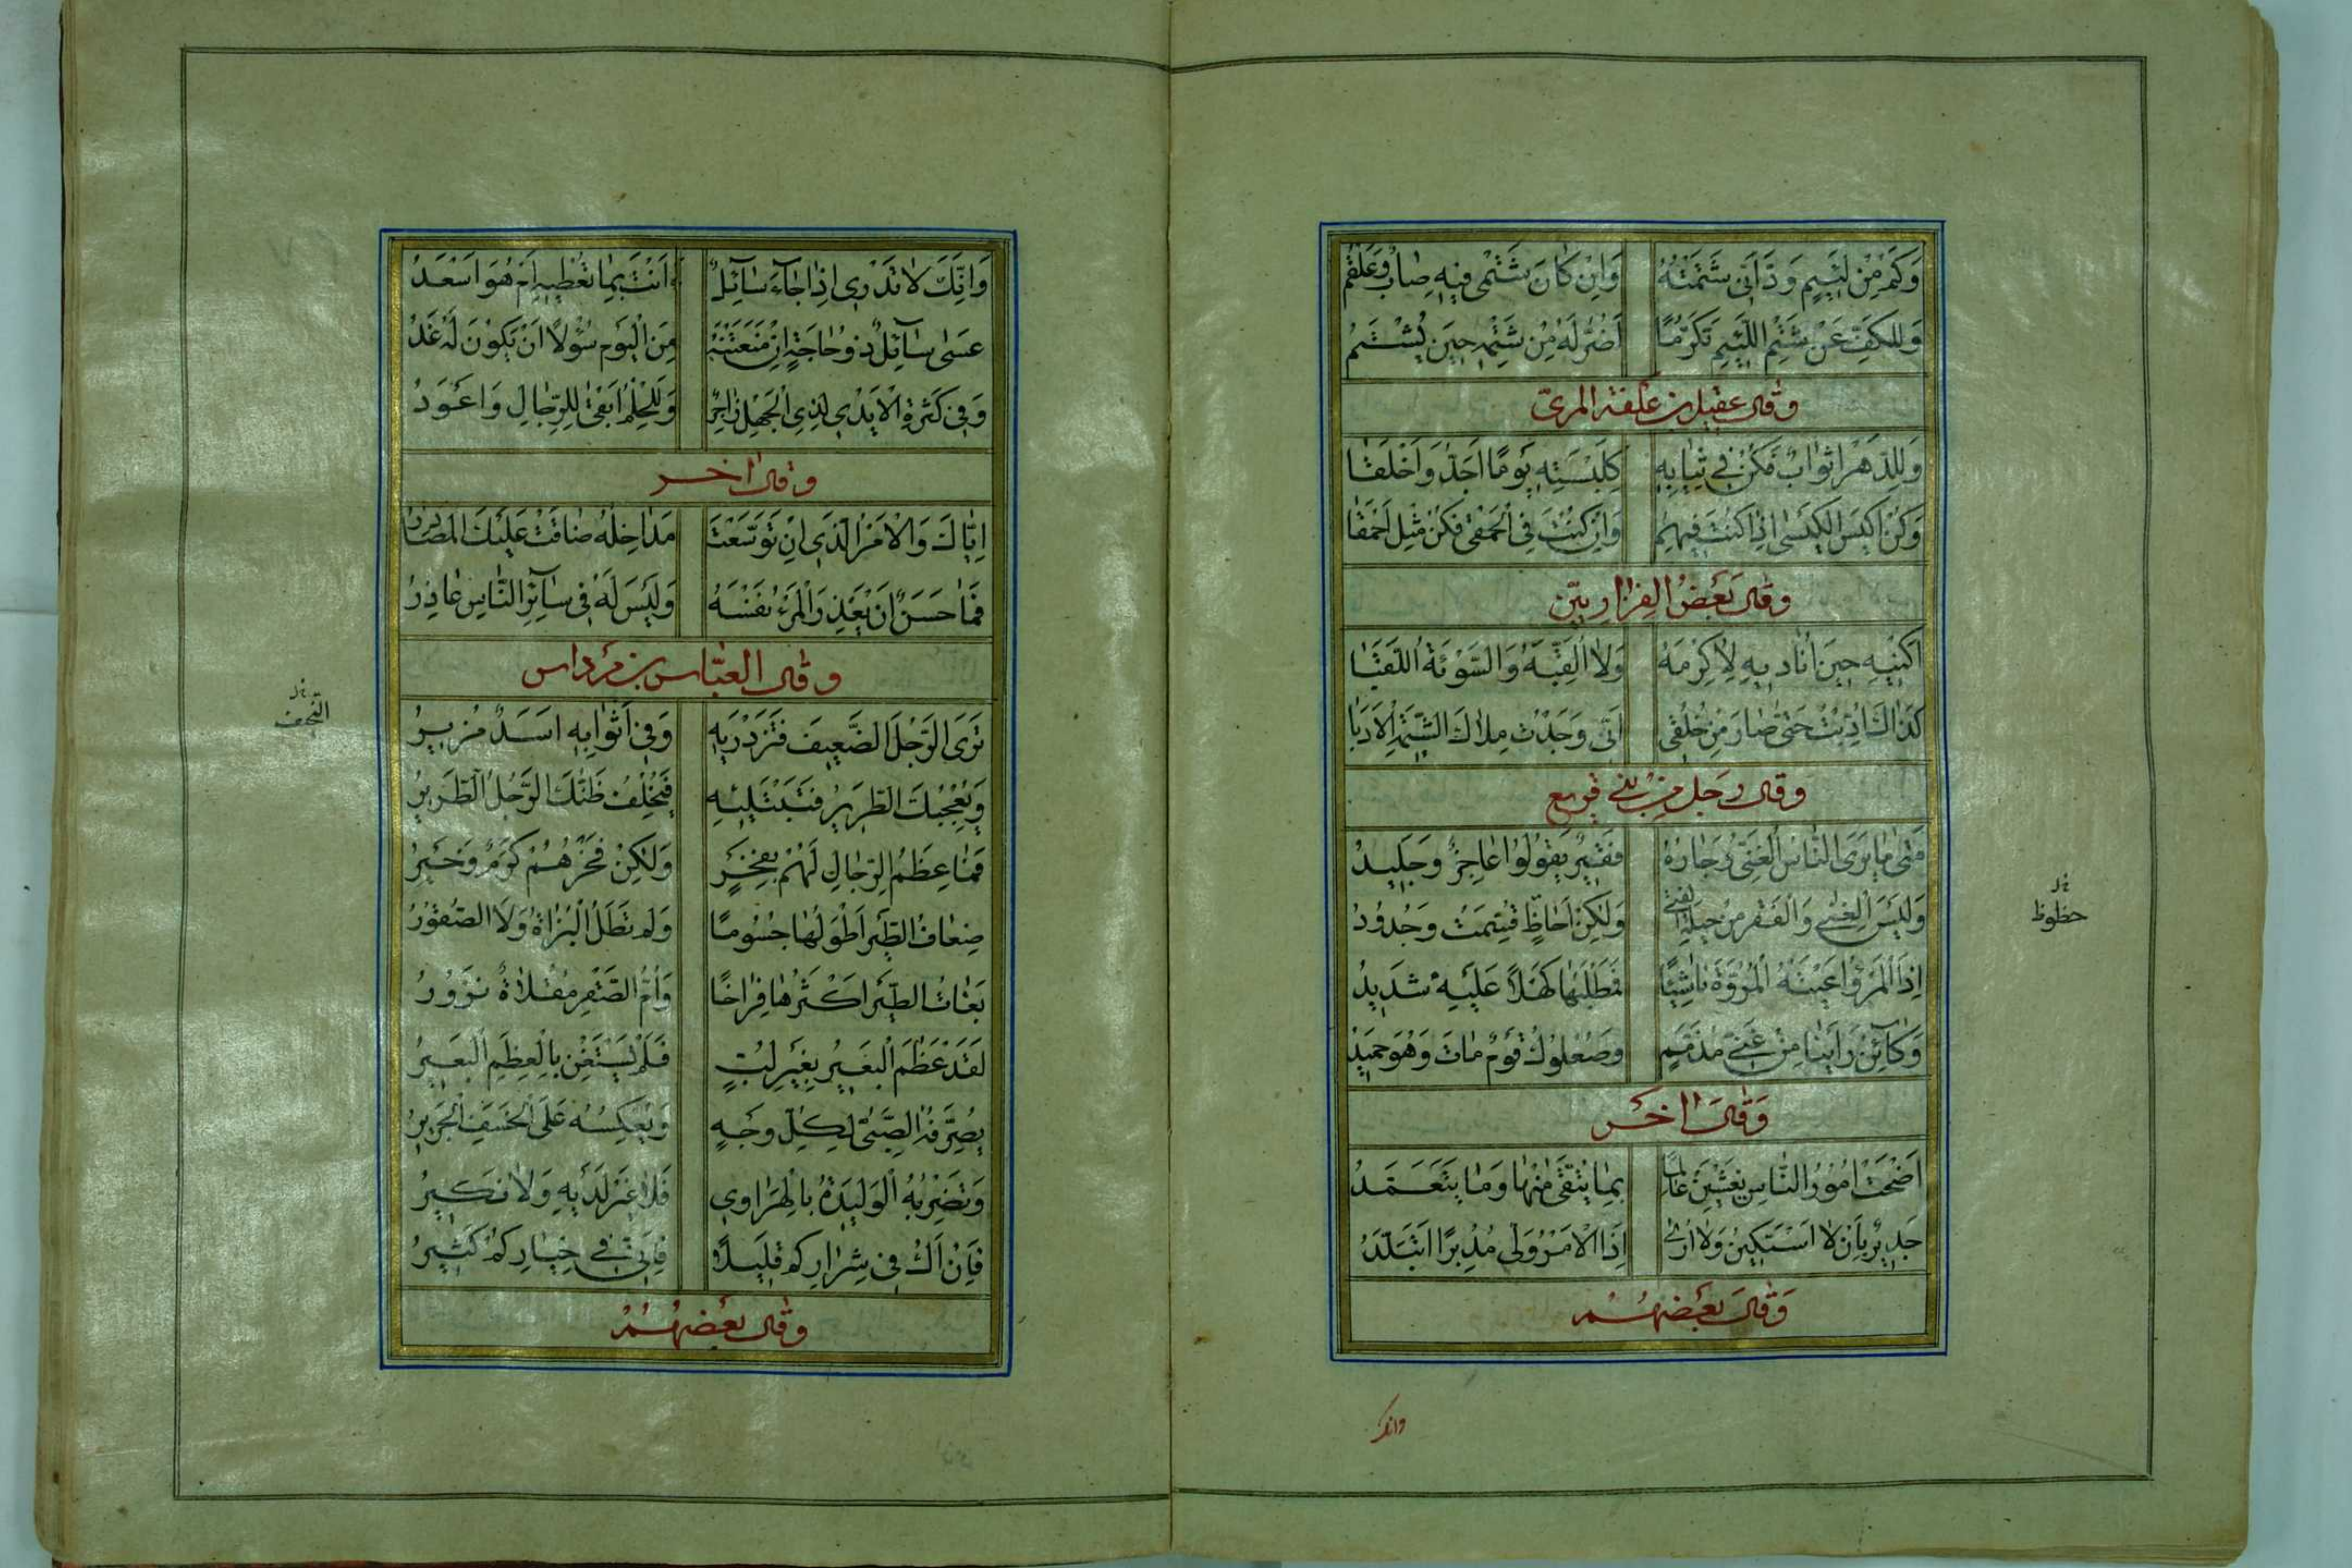 وَكَمْ مِنْ لَئِيمٍ وَدَّ أَنِّى شَتَمْتُهُ وَاِنْ كَانَ شَتْمِى فِيهِ صَابٌ وَعَلْقَمُ
وَلَلْكَفُّ عَنْ شَتْمِ اللَّئِيمِ تَكَرُّمًا اَضَرُّ لَهُ مِنْ شَتْمِهِ حِينَ يُشْتَمُ
وقال عقيل بن علفة المرىّ
وَلِلدَّهْرِ اَثْوَابٌ فَكُنْ فِى ثِيَابِهِ كَلِبْسَتِهِ يَوْمًا اَجَدَّ وَاَخْلَقَا
وَكُنْ اَكْيَسَ الْكَيْسَى اِذَا كُنْتَ فِيهِمِ وَاِنْ كُنْتَ فِى الْحَمْقَى فَكُنْ مِثْلَ اَحْمَقَا
وقال بَعْضُ الفزاريّين
اَكْنِيهِ حِينَ اُنَادِيهِ لِاُكْرِمَهُ وَلَا اُلَقِّبُهُ وَالسَّوْءَةُ اللَّقَبَا
كَذَاكَ اُدِّبْتُ حَتَّى صَارَ مِنْ خُلُقِى اَنِّى وَجَدْتُ مِلَاكَ الشِّيمَةِ الْاَدَبَا
وقال رجل من بنى قريع
مَتَى مَا يَرَى النَّاسُ الْغَنِىَّ وَجَارُهُ فَقِيرٌ يَقُولُوا عَاجِزٌ وَجَلِيدُ
وَلَيْسَ الْغِنَى وَالْفَقْرُ مِنْ حِيلَةِ الْفَتَى وَلَكِنْ اَحَاظٍ قُسِمَتْ وَجُدُودُ
حظوظ
اِذَا الْمَرْءُ اَعْيَتْهُ الْمُرُوَّةُ نَاشِئًا فَمَطْلَبُهَا كَهْلًا عَلَيْهِ شَدِيدُ
وَكَائِنْ رَاَيْنَا مِنْ غَنِىٍّ مُذَمَّمٍ وَصُعْلُوكُ قَوْمٍ مَاتَ وَهْوَ حَمِيدُ
وَقَالَ اٰخَر
اَضْحَتْ اُمُورُ النَّاسِ يَغْشَيْنَ عَالِمًا بِمَا يُتَّقَى مِنْهَا وَمَا يُتَعَمَّدُ
جَدِيرٌ بِاَنْ لَا اَسْتَكِينُ وَلَا اُرَى اِذَا الْاَمْرُ وَلَّى مُدْبِرًا اَتَبَلَّدُ
وَقَالَ بَعْضُهُمْ
وانك
وَاِنَّكَ لَا تَدْرِى اِذَا جَاءَ سَائِلٌ ءَاَنْتَ بِمَا تُعْطِيهِ اَمْ هُوَ اَسْعَدُ
عَسَى سَائِلٌ ذُو حَاجَةٍ اِنْ مَنَعْتَهُ مِنَ الْيَوْمِ سُؤْلًا اَنْ يَكُونَ لَهُ غَدُ
وَفِى كَثْرَةِ الْاَيْدِى لِذِى الْجَهْلِ زَاجِرٌ وَلَلْحِلْمُ اَبْقَى لِلرِّجَالِ وَاَعْوَدُ
وقال اٰخر
اِيَّاكَ وَالْاَمْرَ الَّذِى اِنْ تَوَسَّعَتْ مَدَاخِلُهُ ضَاقَتْ عَلَيْكَ الْمَصَادِرُ
فَمَا حَسَنٌ اَنْ يَعْذِرَ الْمَرْءُ نَفْسَهُ وَلَيْسَ لَهُ فِى سَائِرِ النَّاسِ عَاذِرُ
وقال العبّاس بن مرداس
تَرَى الرَّجُلَ الضَّعِيفَ فَتَزْدَرِيهِ وَفِى اَثْوَابِهِ اَسَدٌ مُزِيرُ
وَيُعْجِبُكَ الطَّرِيرُ فَتَبْتَلِيهِ فَيُخْلِفُ ظَنَّكَ الرَّجُلُ الطَّرِيرُ
فَمَا عِظَمُ الرِّجَالِ لَهُمْ بِفَخْرٍ وَلَكِنْ فَخْرُهُمْ كَرَمٌ وَخَيْرُ
ضِعَافُ الطَّيْرِ اَطْوَلُهَا جُسُومًا وَلَمْ تَطُلِ الْبُزَاةُ وَلَا الصُّقُورُ
بُغَاثُ الطَّيْرِ اَكْثَرُهَا فِرَاخًا وَاُمُّ الصَّقْرِ مِقْلَاةٌ نَزُورُ
لَقَدْ عَظُمَ الْبَعِيرُ بِغَيْرِ لُبٍّ فَلَمْ يَسْتَغْنِ بِالْعِظَمِ الْبَعِيرُ
يُصَرِّفُهُ الصَّبِىُّ لِكُلِّ وَجْهٍ وَيَعْكِسُهُ عَلَى الْخَسْفِ الْجَرِيرُ
وَتَضْرِبُهُ الْوَلِيدَةُ بِالْهَرَاوِى فَلَا غِيَرٌ لَدَيْهِ وَلَا نَكِيرُ
فَاِنْ اَكُ فِى شِرَارِكُمُ قَلِيلًا فَاِنِّى فِى خِيَارِكُمُ كَثِيرُ
وقال بَعْضُهُمْ